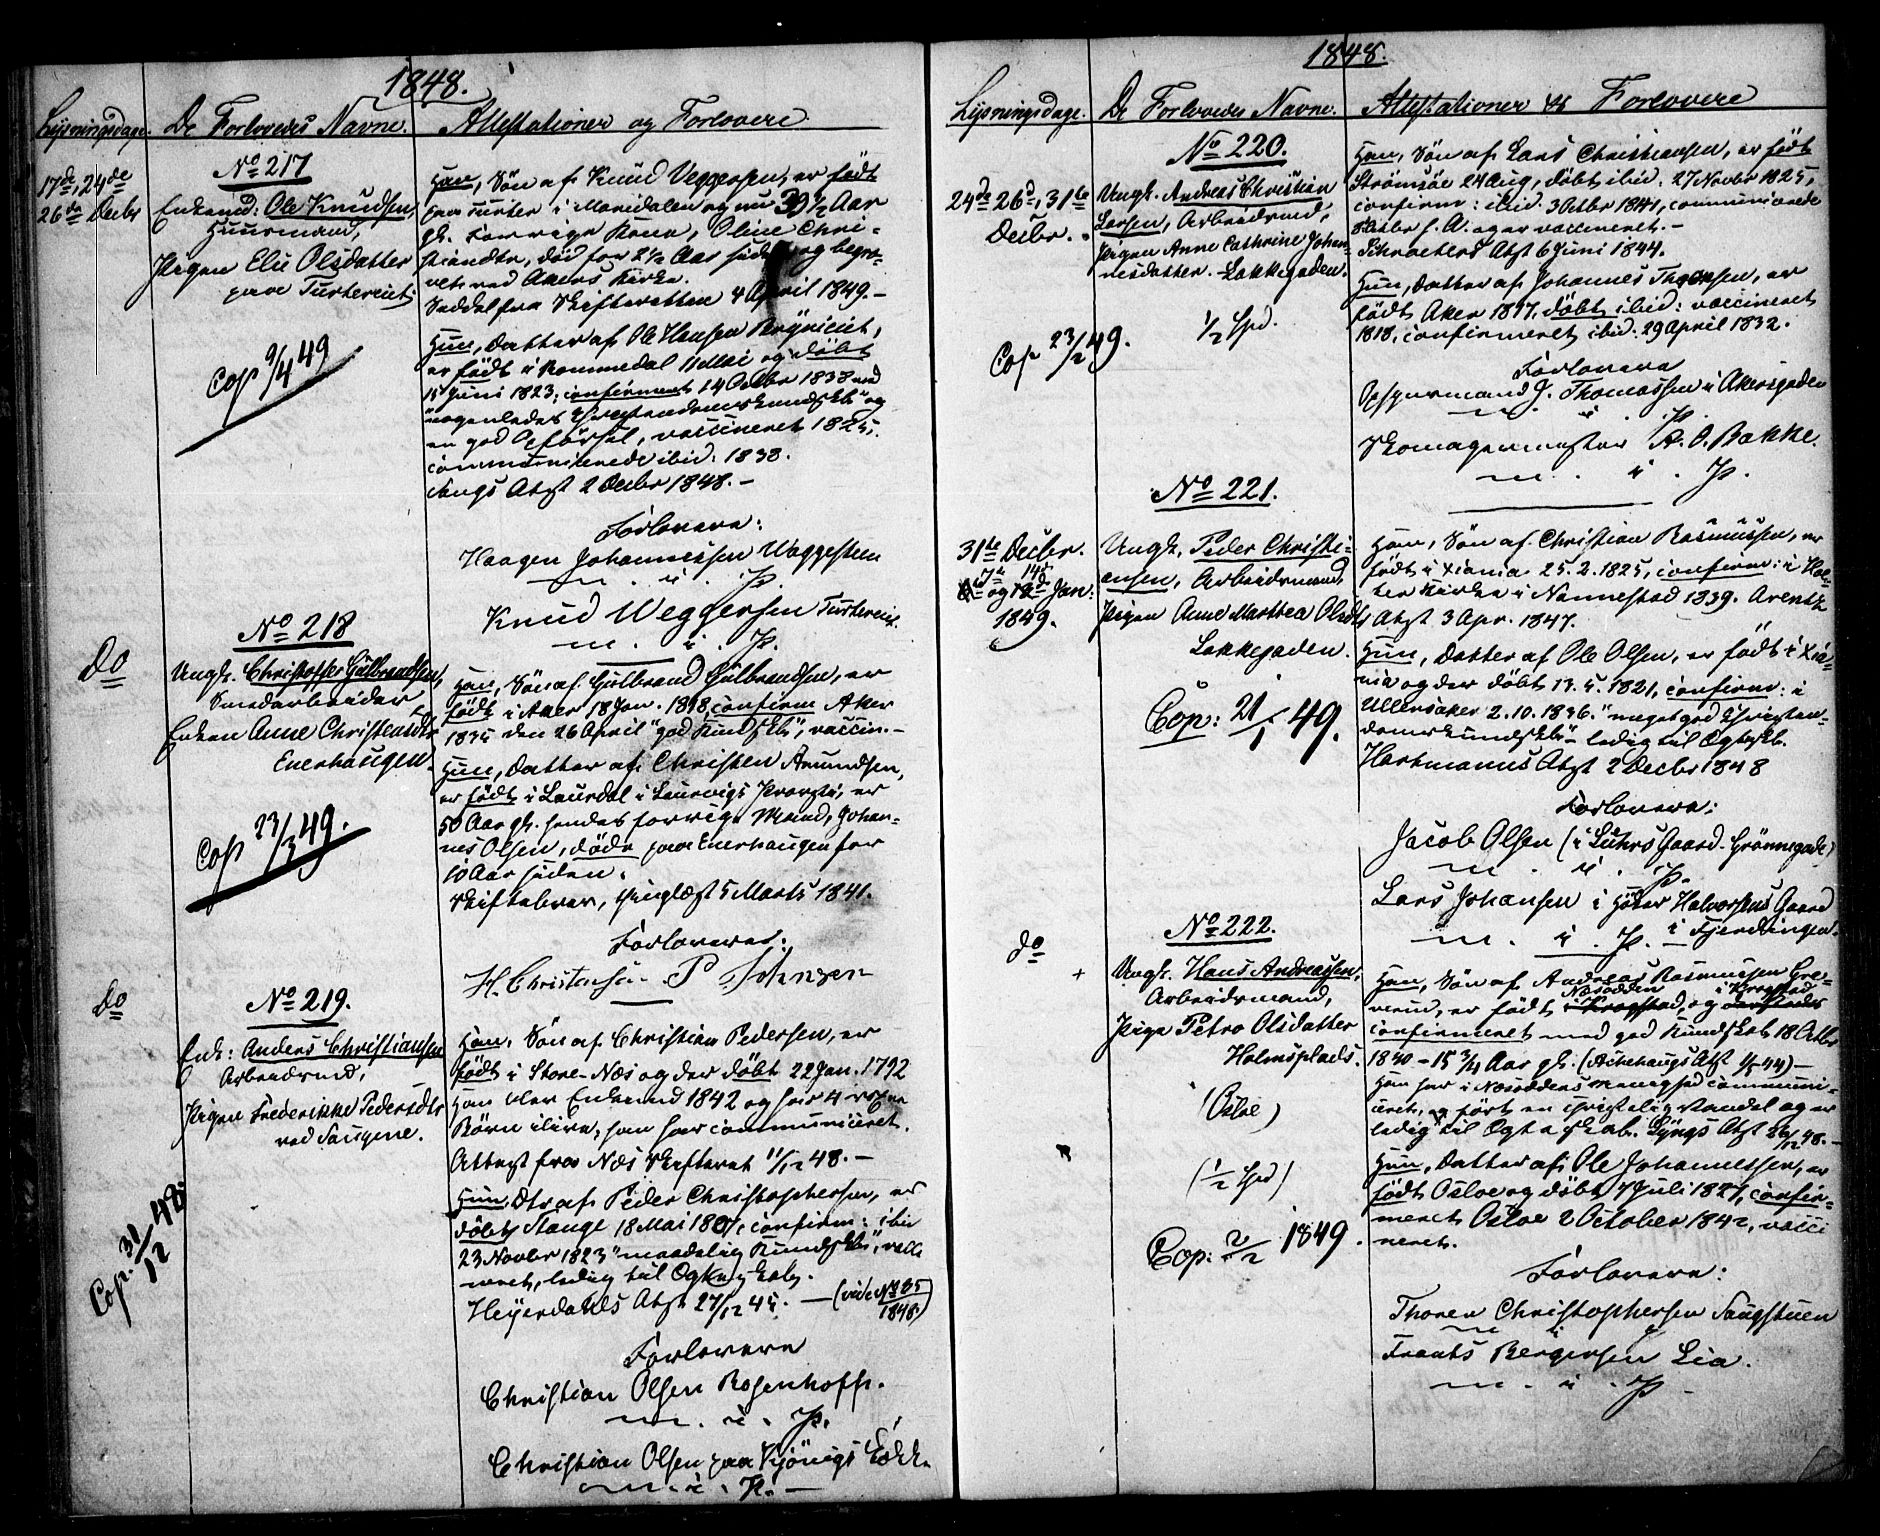 1848.
Lysningsdage. De Forlovedes Navne. Attestationer og Forlovere
17de, 24de
26de Decbr
No 217
Enkemd: Ole Knudsen,
Huusmand,
Pigen Elie Olsdatter
paa Turtereiet
Cop 9/4 49
Han, Søn af Knud Veggersen, er født
paa Turter i Maridalen og nu 39 1/2 Aar
gl. Forrige Kone, Oline Chri-
stiansdtr, død for 2 1/2 Aar siden og begra-
vet ved Akers Kirke.
Seddel fra Skifteretten 4 April 1849.-
Hun, Datter af Ole Hansen
er født i Rommedal 11 Mai og døbt
15 Juni 1823, confirmeret 14 Octbr 1838 med
"nogenledes Christendomskundskb" og
en god Opførsel, vaccineret 1825.
communicerede ibid. 1838.
Attst 2 Decbr 1848.-
Forlovere:
Haagen Johannessen Waggesteen
m. i. P.
Knud Weggersen Turtereiet.
m. i. P.
Do
No 218
Ungk. Christoffer Gulbrandsen,
Smedarbeider
Enken Anne Christensdtr
Enerhaugen.
Cop 23/3 49.
Han, Søn af Gulbrand Gulbrandsen, er
født i Aker 18 Jan. 1818, confirm Aker
1835 den 26 April "god Kundskb", vaccin.-
Hun, Datter af Christen Amundsen,
er født i Laurdal i Laurvigs Provsti, er
50 Aar gl. hendes forrige Mand, Johan-
nes Olsen, døde paa Enerhaugen for
10 Aar siden.
Skiftebrev, thinglæst 5 Marts 1841.
Forlovere:
H. Christensen P. Johnsen
Do
No 219.
Enk: Anders Christiansen
Arbeidsmd,
Pigen Frederikke Pedersdtr
ved Saugene.
Cop. 31/12 48
Han, Søn af Christian Pedersen, er
født i Store-Næs og der døbt 22 Jan. 1792
Han blev Enkemd 1842 og har 4
Børn ilive, han har communiceret.
Attest fra Næs Skifteret 11/12 48.-
Hun, Dtr af Peder Christophersen, er
døbt Stange 18 Mai 1807, confirm: ibid
23 Novbr 1823 "maadelig Kundskb", vacci
neret, ledig til Ogteskab.
Heyerdahls Atst 27/12 45. - (vide No 35/1848)
Forlovere
Christian Olsen Rosenhoff.
m. i. P.
Christian Olsen paa
m. i. P. -
1848.
Lysningsdage. De Forlovedes Navne. Attestationer & Forlovere
24de 26de, 31te
Decbr.
No 220.
Ungk. Andreas Christian
Larsen, Arbeidsmd,
Pigen Anne Cathrine Johan-
nesdatter. - Lakkegaden.
1/2 Spd.
Cop 23/2 49.
Han, Søn af Lars Christiansen, er født
Strømsøe 24 Aug, døbt ibid. 27 Novbr 1825,
confirm: ibid. 3 Octbr 1841, communicerede
Octbr s. A. og er vaccineret. -
Schroeters Atst 6 Juni 1844.
Hun, Datter af Johannes Thoersen, er
født Aker 1817, døbt ibid: vaccineret
1818, confirmeret ibid. 29 April 1832.
Forlovere
Opsynsmand J. Thomassen i Akersgaden
m. i. P.
Skomagermester A. O. Bakke.
m. i. P.
31te Decbr.
7de 14de
og Jan:
1849.
No 221.
Ungk. Peder Christi-
ansen, Arbeidsmand,
Pigen Anne Marthea Olsdtr
Lakkegaden.
Cop: 21/1 49.
Han, Søn af Christian Rasmussen, er
født i Xiania 25.2.1825, confirm: i Hol-
ter Kirke i Nannestad 1839. Arentz
Atst 3 Apr. 1847.
Hun, Datter af Ole Olsen, er født i Xia-
nia og der døbt 13.5.1821, confirm: i
Ullensaker 2.10.1836. "meget god Christen-
domskundskb" - ledig til Ogtesk.
Hartmanns Atst 2 Decbr 1848
Forlovere:
Jacob Olsen (i Luhrs Gaard - Grønnegade)
m. i. P.
Lars Johansen i Halvorsens Gaard
m. i. P. - i Fjerdingen.
do
No 222.
Ungk. Hans Andreasen,
Arbeidsmand,
Pige Petro Olsdatter
Holmsplads.
(Osloe)
(1/2 Spd)
Cop: 2/2 1849.
Han, Søn af Andreas Rasmussen Gre-
verud, er født i Krogstad, og
Næsodden i Krogstad
confirmeret med god Kundskab 18 Octbr
1840 - 15 3/4 Aar gl. (Askehaugs Atst 1/5 44) -
Han har i Næsoddens Menighed communi-
ceret, og ført en christelig Vandel og er
ledig til Ogteskab. Lyngs Atst 26/12 48.-
Hun, Datter af Ole Johannessen, er
født Osloe og døbt 7 Juli 1827, confir-
meret Osloe 2 October 1842, vacci
neret.
Forlovere:
Thoren Christophersen Saugstuen
m i P
Frants Bergersen Lia.
m. i. P. -